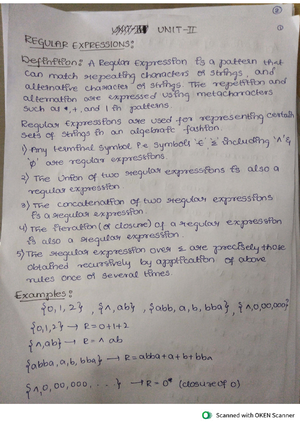 UNIT-II
REGULAR EXPRESSIONS:
Definition: A Regular Expression is a pattern that
can match repeating characters or strings, and
alternative characters or strings. The repetition and
alternation are expressed using metacharacters
such as *, +, and | in patterns.
Regular Expressions are used for representing certain
sets of strings in an algebraic fashion.
1) Any terminal symbol i.e symbols '∈' Σ including '∧' &
'φ' are regular expressions.
2) The Union of two regular expressions is also a
regular expression
3) The concatenation of two regular expressions
is a regular expression
4) The iteration (or closure) of a regular expression
is also a regular expression.
5) The regular expression over Σ are precisely those
obtained recursively by application of above
rules once or several times.
Examples:
{0,1,2}, {∧,ab}, {abb, a, b, bba}, {∧,0,00,000}
{0,1,2} → R = 0+1+2
{∧,ab} → R = ∧ ab
{abba, a, b, bba} → R = abba+a+b+bba
{∧, 0, 00, 000, ...} → R = 0* (closure of 0)
Scanned with OKEN Scanner